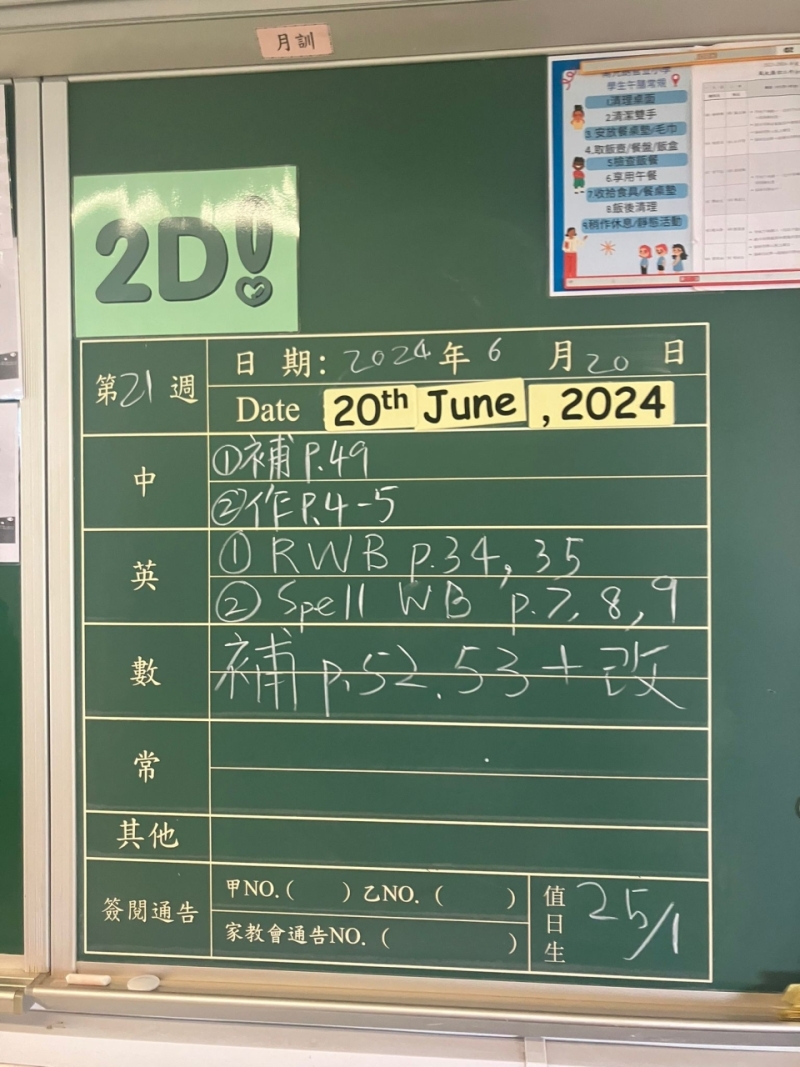 月訓
學生午膳常規
1.清理桌面
2.清潔雙手
3.安放餐桌墊/毛巾
4.取飯壺/餐盤/飯盒
5.檢查飯餐
6.享用午餐
7.收拾食具/餐桌墊
8.飯後清理
9.稍作休息/靜態活動
2D!
第21週
日期: 2024年6月20日
Date 20th June, 2024
中
①補 P.49
②作 P.4-5
英
① RWB p.34, 35
② Spell WB p.7, 8, 9
數
補 p.52. 53 + 改
常
其他
簽閱通告
甲NO.( ) 乙NO. ( )
家教會通告NO. ( )
值日生 25/1